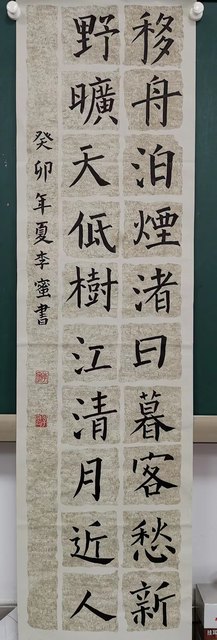 移舟泊煙渚日暮客愁新
野曠天低樹江清月近人
癸卯年夏李蜜書